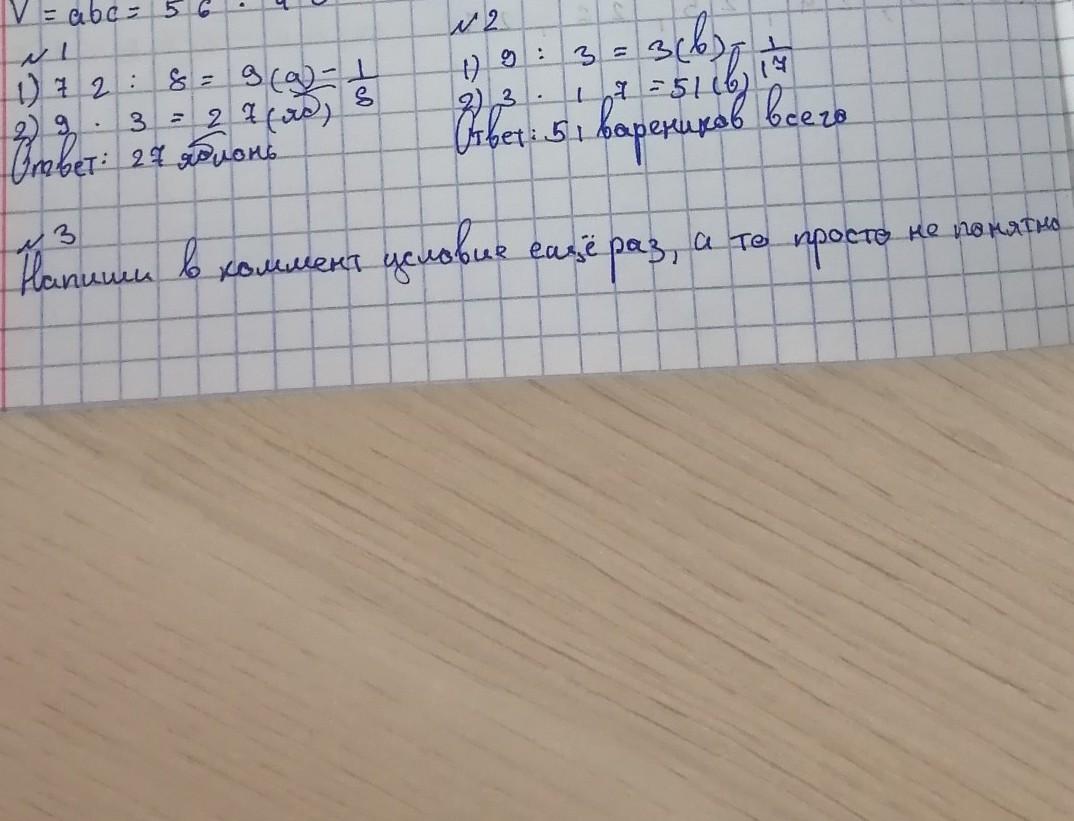 V = abc = 56 ·
№1
1) 72 : 8 = 9(д) - 1/8
2) 9 · 3 = 27(яб)
Ответ: 27 яблонь
№2
1) 9 : 3 = 3(в) - 1/17
2) 3 · 17 = 51(в)
Ответ: 51 вареников всего
№3
Напиши в коммент условие ещё раз, а то просто не понятно